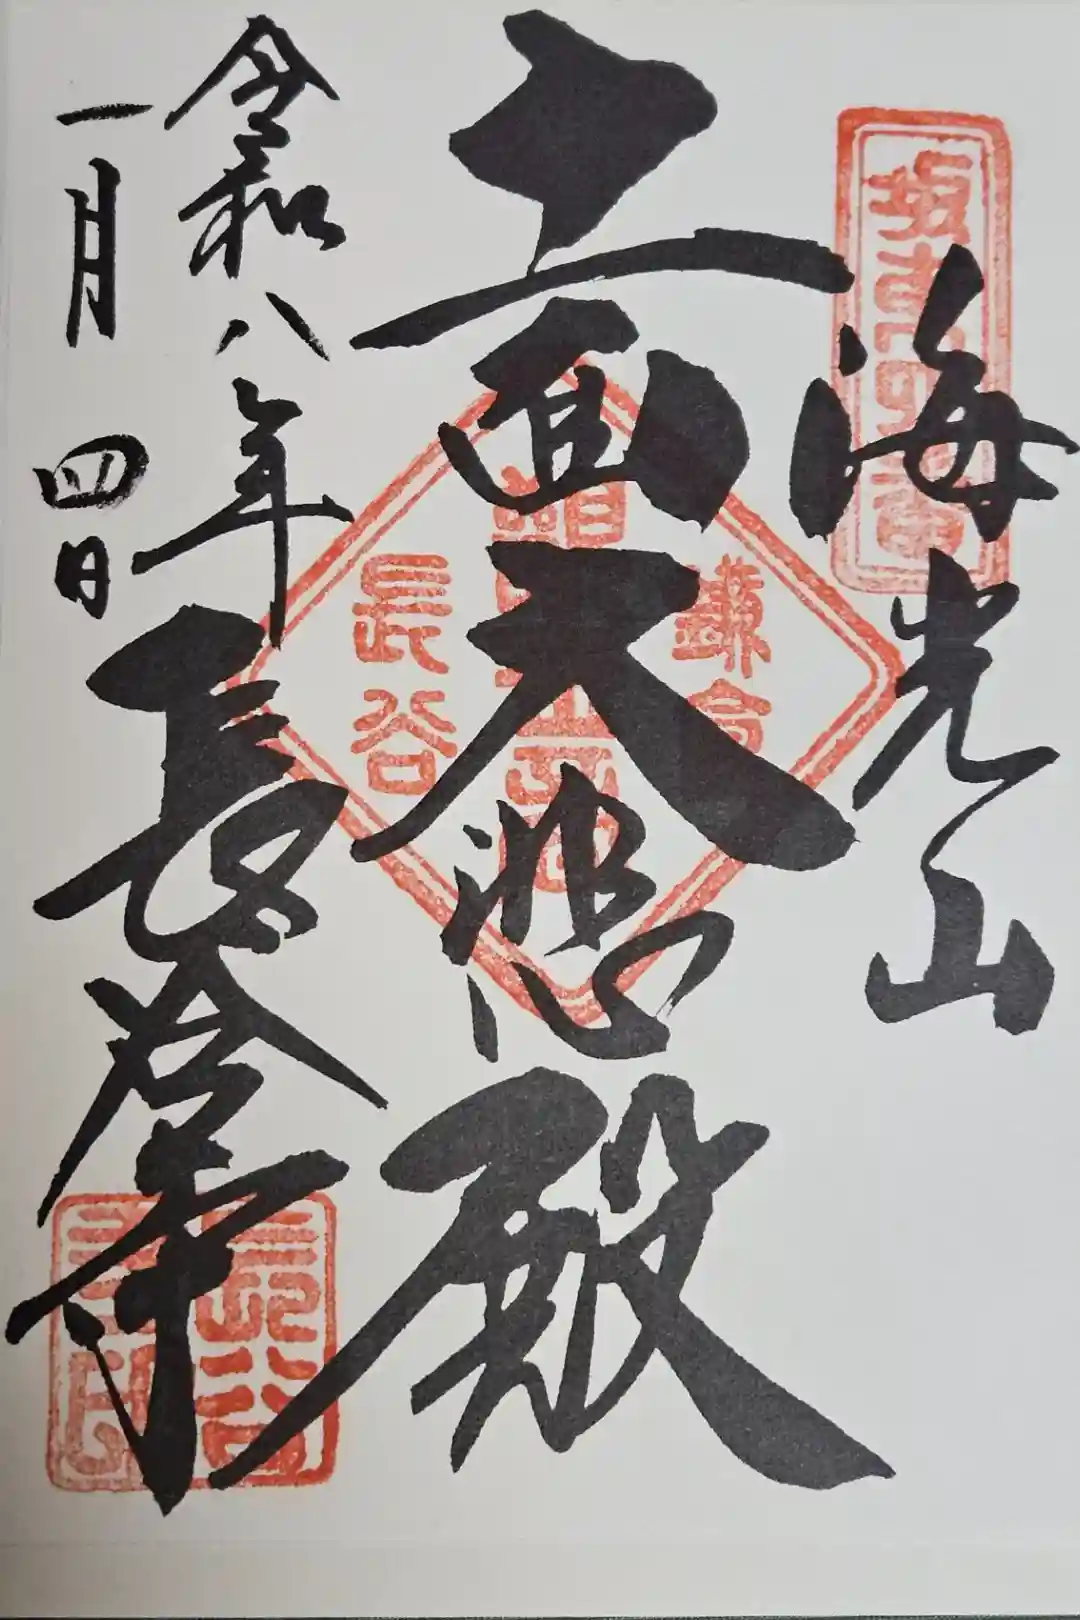 坂東第四番
海光山
十一面大悲殿
鎌倉
長谷
令和八年
一月四日
長谷寺
長谷
寺印